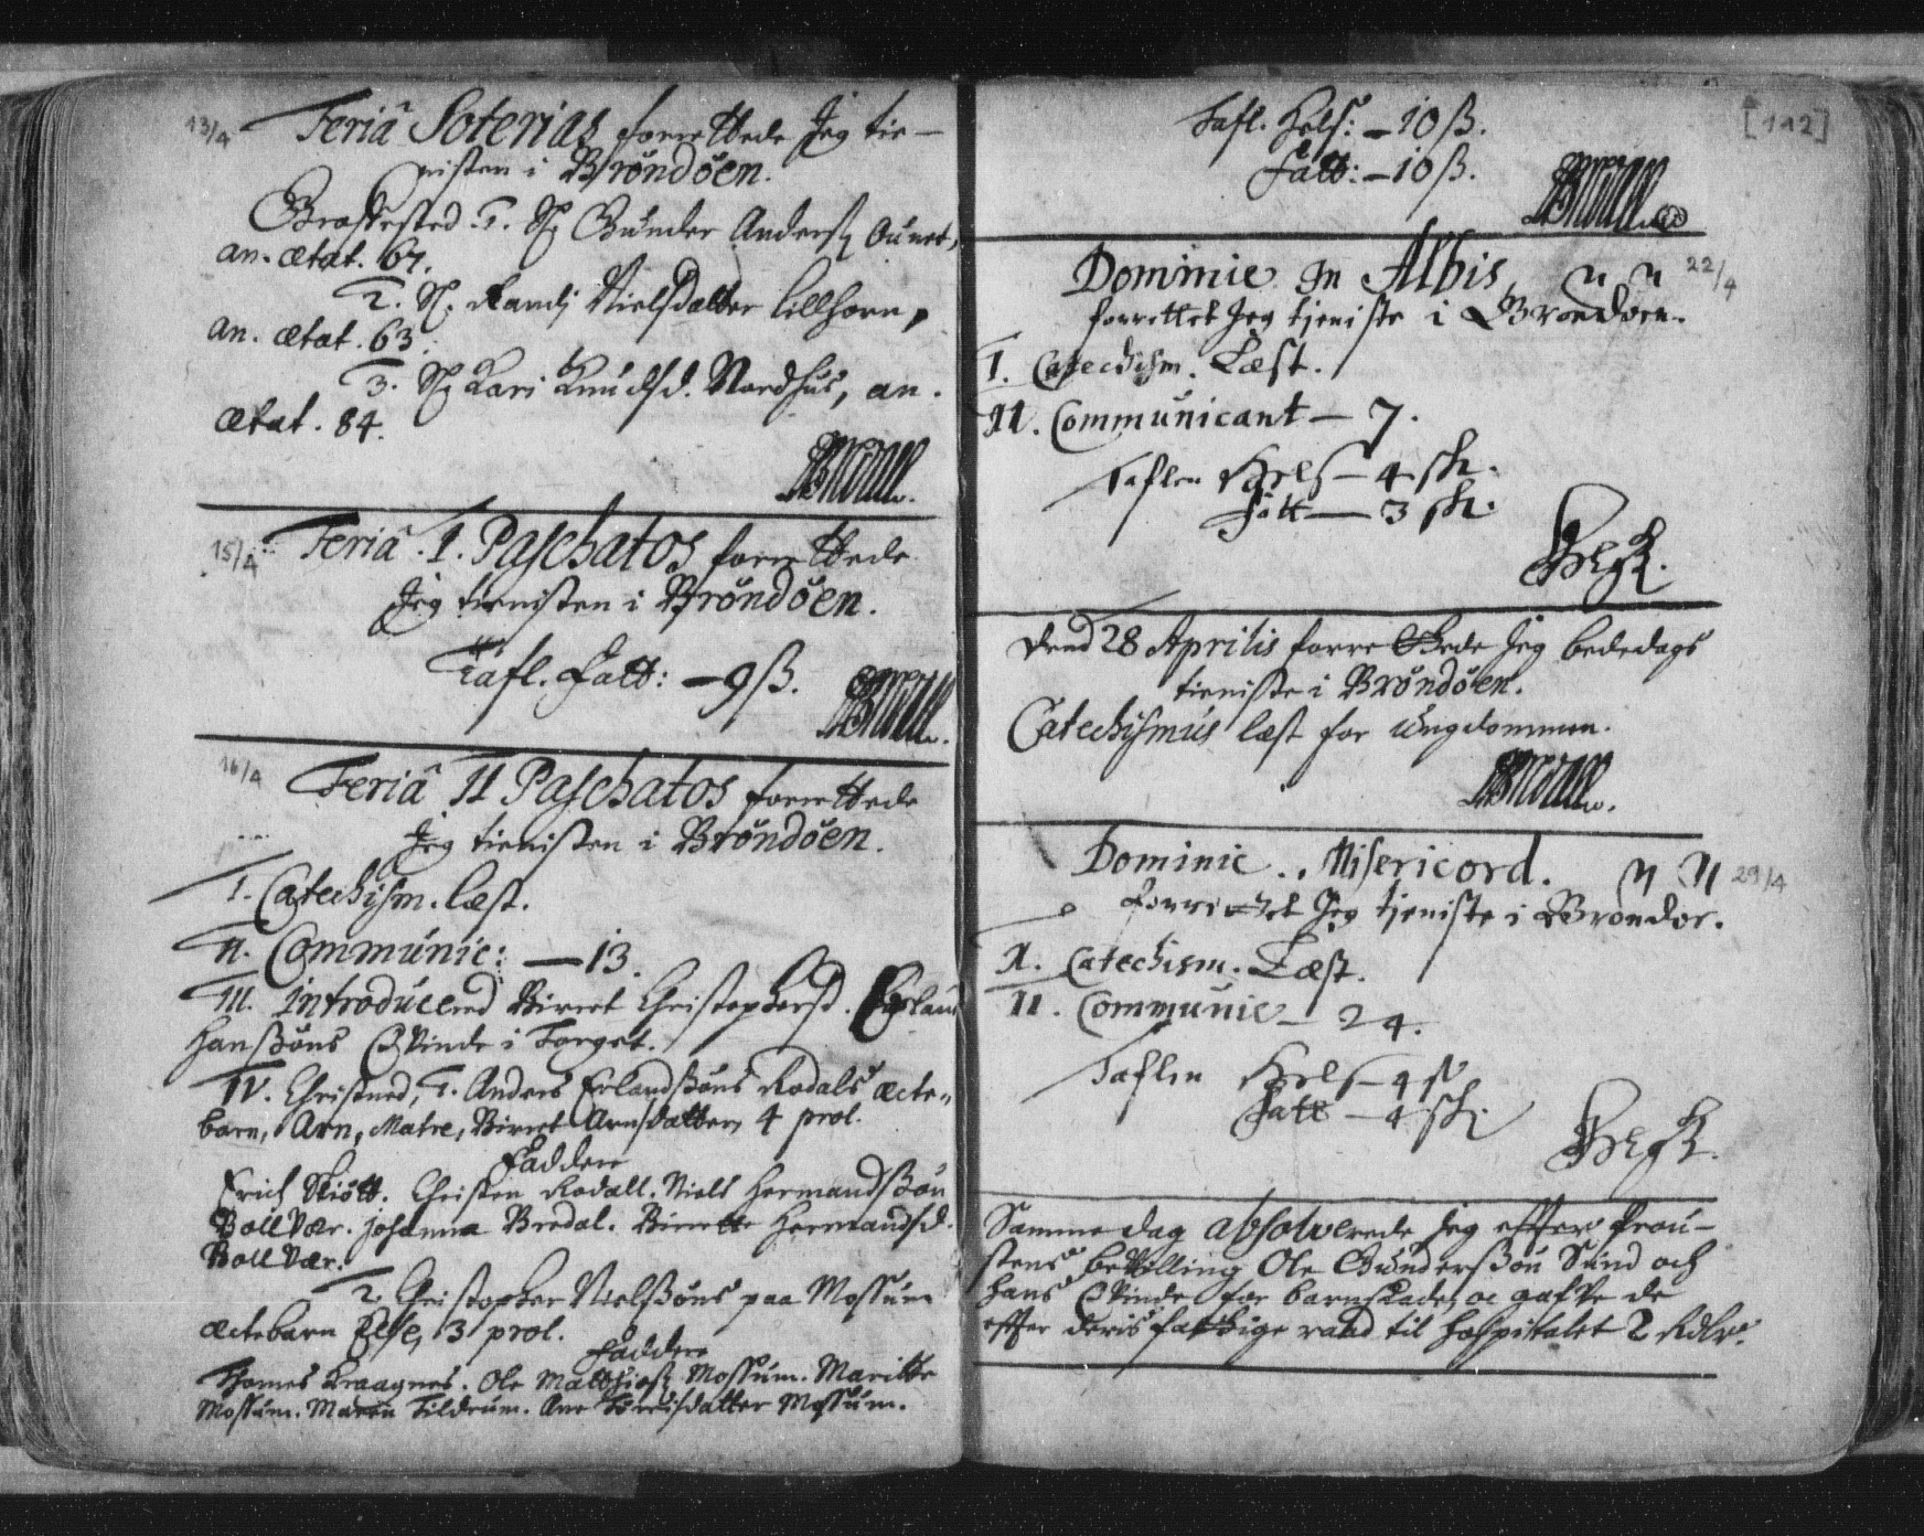 13/4
Feriâ Soterias forrettede Jeg tie-
nisten i Brøndøen.
Graffested. 1. Sl. Gunder Anders. Aunet,
an. ætat. 67.
2. Sl. Randj Nielsdatter Lillhorn,
an. ætat. 63.
3. Sl. Kari Knudsd. Nordhus, an.
ætat. 84.
15/4
Feriâ. I. Paschatos forrettede
Jeg tienisten i Brøndøen.
Tafl. Fatt: — 9 ß.
16/4
Feriâ II Paschatos forrettede
Jeg tienisten i Brøndøen.
I. Catechism. læst.
II. Communic: — 13.
III. Introducered Birret Christophersd. Erland
Hanßøns Qvinde i Torget.
IV. Christned, 1. Anders Erlandßøns Rodals ecte-
barn, Arn, Matre, Birret Arnsdatter, 4 prol.
Fadder
Erich Skiøtt. Christen Rodall. Niels Hermandßøn
Bollvær. Johanna Bredal. Birrette Hermandsd.
Bollvær.
2. Christopher Nielßøns paa Mossum
ectebarn Else, 3 prol.
Faddere
Thomes Kraagnes. Ole Matthias. Mossum. Maritte
Mossum. Maren Tildrum. Ane Torrisdatter Mossum.
[112]
Tafl. Hels: — 10 ß.
Fatt: — 10 ß.
Dominic. In Albis 22/4
forrettet Jeg tjeniste i Brøndøen.
I. Catechism. Læst.
II. Communicant — 7.
Taflen Hels — 4 sk.
Fatt — 3 sk.
Dend 28 Aprilis forrettede Jeg bededags
tieniste i Brøndøen.
Catechismus læst for ungdommen.
Dominic.. Misericord. 29/4
forrettet Jeg tjeniste i Brøndøe.
I. Catechism. Læst.
II. Communic — 24.
Taflen Hels — 4 s
Fatt — 4 sk:
Samme dag absolverede Jeg effter Prou-
stens bevilling Ole Gunderßøn Sund och
hans Qvinde for barnskade, oc gaffve de
effter deris fattige raad til Hospitalet 2 Rdlr.